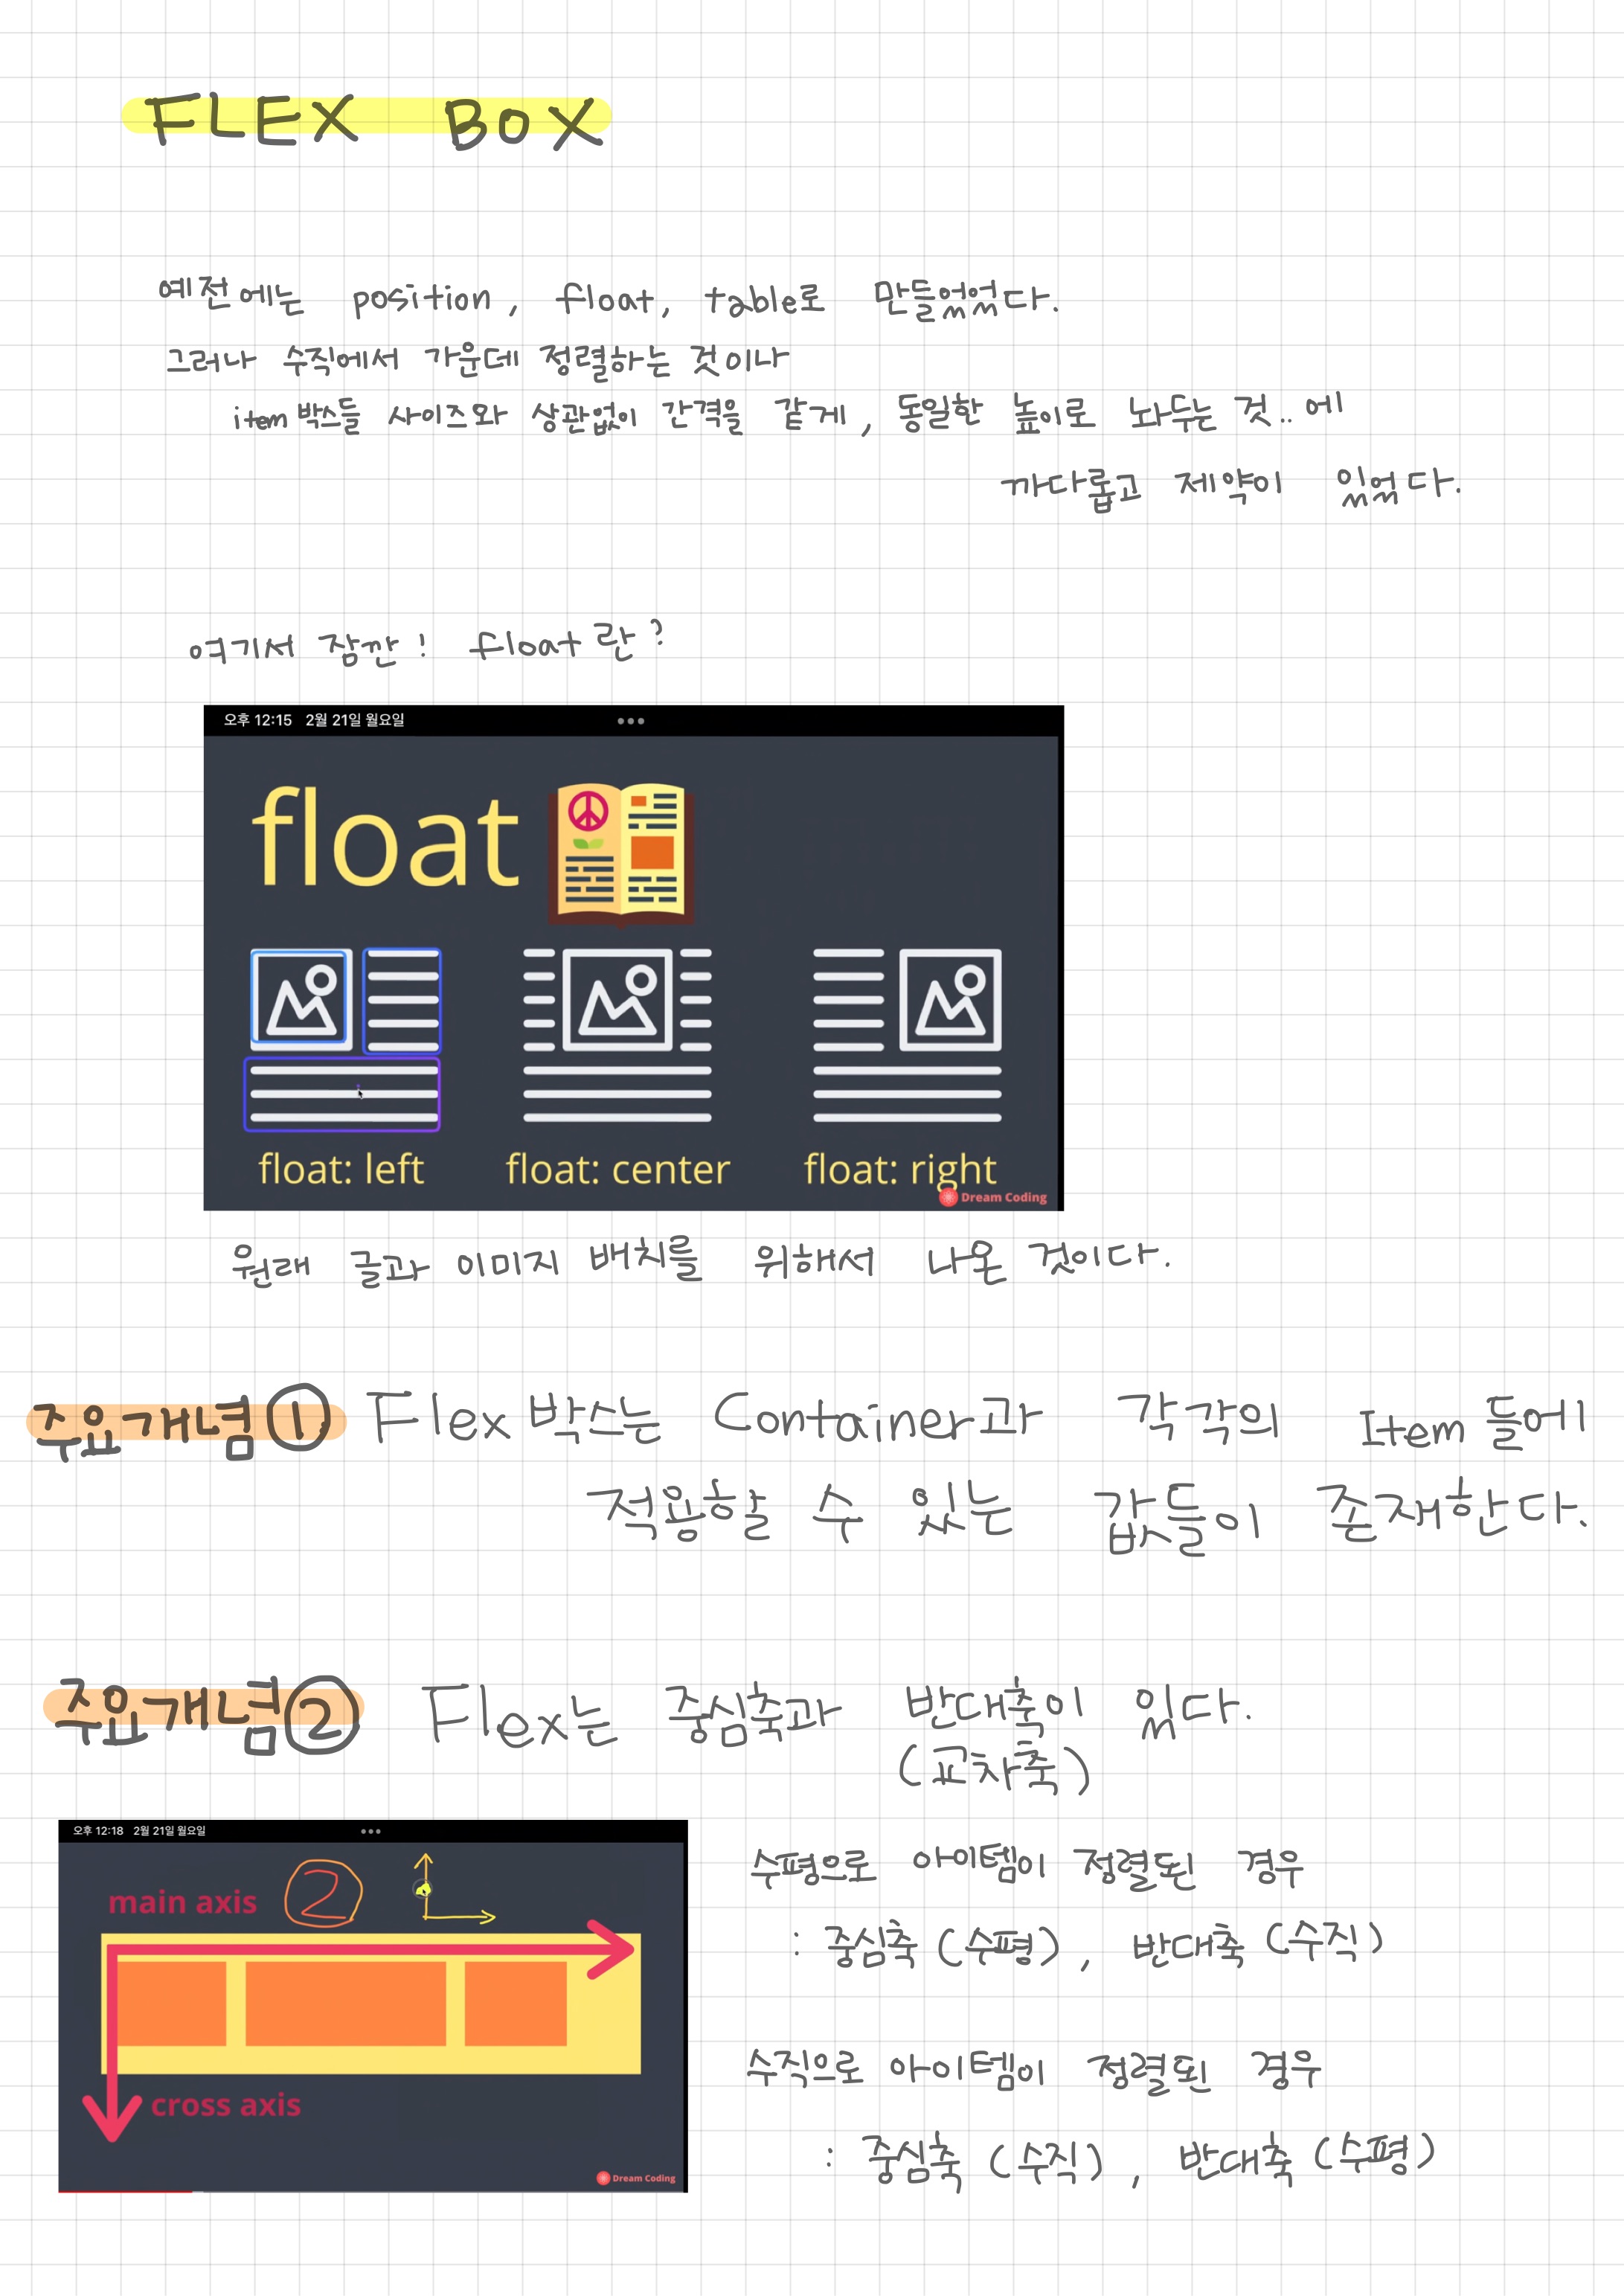 FLEX BOX
예전에는 position, float, table로 만들었었다.
그러나 수직에서 가운데 정렬하는 것이나
item 박스들 사이즈와 상관없이 간격을 같게, 동일한 높이로 놔두는 것.. 에
까다롭고 제약이 있었다.
여기서 잠깐! float란?
오후 12:15 2월 21일 월요일
float
float: left float: center float: right
Dream Coding
원래 글과 이미지 배치를 위해서 나온 것이다.
주요개념① Flex 박스는 Container과 각각의 Item 들에
적용할 수 있는 값들이 존재한다.
주요개념② Flex는 중심축과 반대축이 있다.
(교차축)
오후 12:18 2월 21일 월요일
main axis 2
cross axis
Dream Coding
수평으로 아이템이 정렬된 경우
: 중심축 (수평), 반대축 (수직)
수직으로 아이템이 정렬된 경우
: 중심축 (수직), 반대축 (수평)